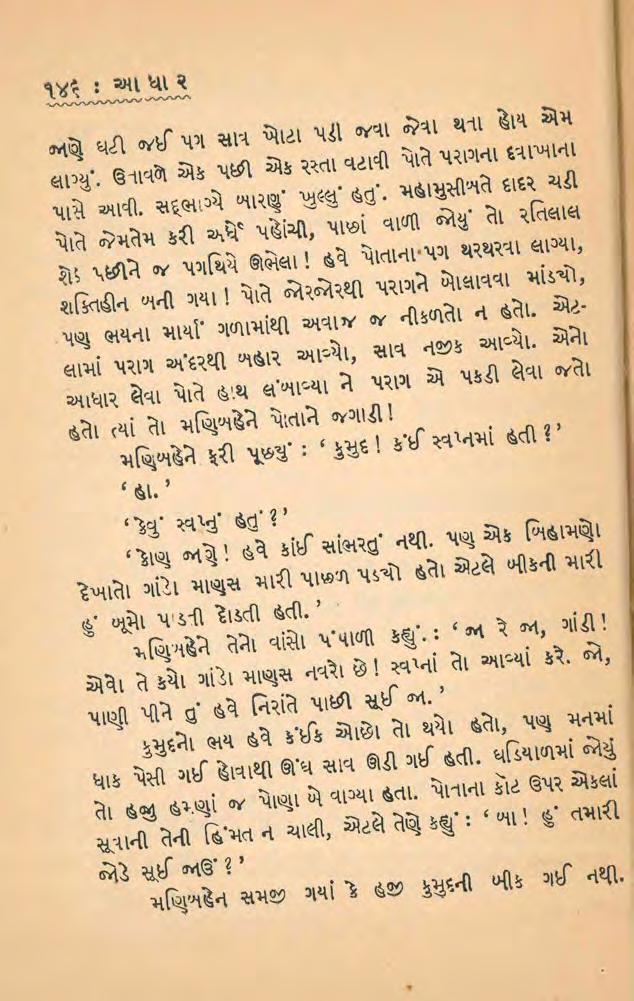 ૧૪૬ : આ ધા ર
જાણે ઘટી જઈ પગ સાવ ખોટા પડી જવા જેવા થતા હોય એમ
લાગ્યું. ઉતાવળે એક પછી એક રસ્તા વટાવી પોતે પરાગના દવાખાના
પાસે આવી. સદ્ભાગ્યે બારણું ખુલ્લું હતું. મહામુસીબતે દાદર ચડી
પોતે જેમતેમ કરી અર્ધે પહોંચી, પાછાં વાળી જોયું તો રતિલાલ
શેઠ પછીને જ પગથિયે ઊભેલા! હવે પોતાના પગ થરથરવા લાગ્યા,
શક્તિહીન બની ગયા! પોતે જોરજોરથી પરાગને બોલાવવા માંડ્યો,
પણ ભયના માર્યાં ગળામાંથી અવાજ જ નીકળતો ન હતો. એટ-
લામાં પરાગ અંદરથી બહાર આવ્યો, સાવ નજીક આવ્યો. એનો
આધાર લેવા પોતે હાથ લંબાવ્યા ને પરાગ એ પકડી લેવા જતો
હતો ત્યાં તો મણિબહેને પોતાને જગાડી!
મણિબહેને ફરી પૂછ્યું : ‘ કુમુદ! કંઈ સ્વપ્નમાં હતી?’
‘ હા. ’
‘ કેવું સ્વપ્નું હતું?’
‘ કોણ જાણે! હવે કાંઈ સાંભરતું નથી. પણ એક બિહામણો
દેખાતો ગાંડો માણસ મારી પાછળ પડ્યો હતો એટલે બીકની મારી
હું બૂમો પાડતી દોડતી હતી. ’
મણિબહેને તેનો વાંસો પંપાળી કહ્યું. : ‘ જા રે જા, ગાંડી!
એવો તે કયો ગાંડો માણસ નવરો છે! સ્વપ્નાં તો આવ્યાં કરે. જો,
પાણી પીને તું હવે નિરાંતે પાછી સૂઈ જા. ’
કુમુદનો ભય હવે કંઈક ઓછો તો થયો હતો, પણ મનમાં
ધાક પેસી ગઈ હોવાથી ઊંઘ સાવ ઊડી ગઈ હતી. ઘડિયાળમાં જોયું
તો હજી હમણાં જ પોણા બે વાગ્યા હતા. પોતાના કૉટ ઉપર એકલાં
સૂવાની તેની હિંમત ન ચાલી, એટલે તેણે કહ્યું : ‘ બા! હું તમારી
જોડે સૂઈ જાઉં?’
મણિબહેન સમજી ગયાં કે હજી કુમુદની બીક ગઈ નથી.